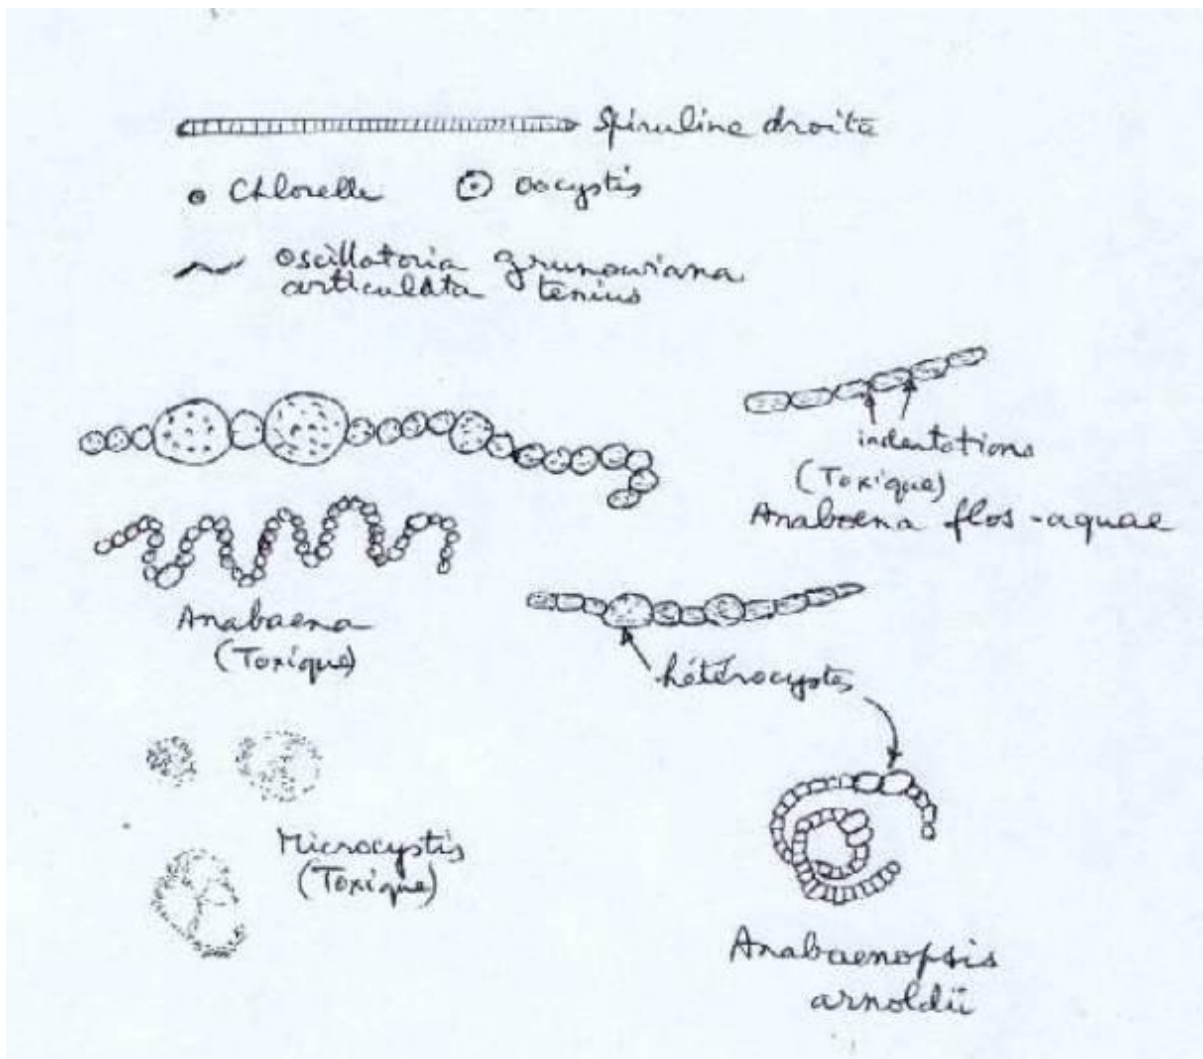 Spiruline droite
Chlorelle
oocystis
oscillatoria grunowiana
articulata tenius
indentations
(Toxique)
Anabaena flos-aquae
Anabaena
(Toxique)
hétérocystes
Microcystis
(Toxique)
Anabaenopsis
arnoldii